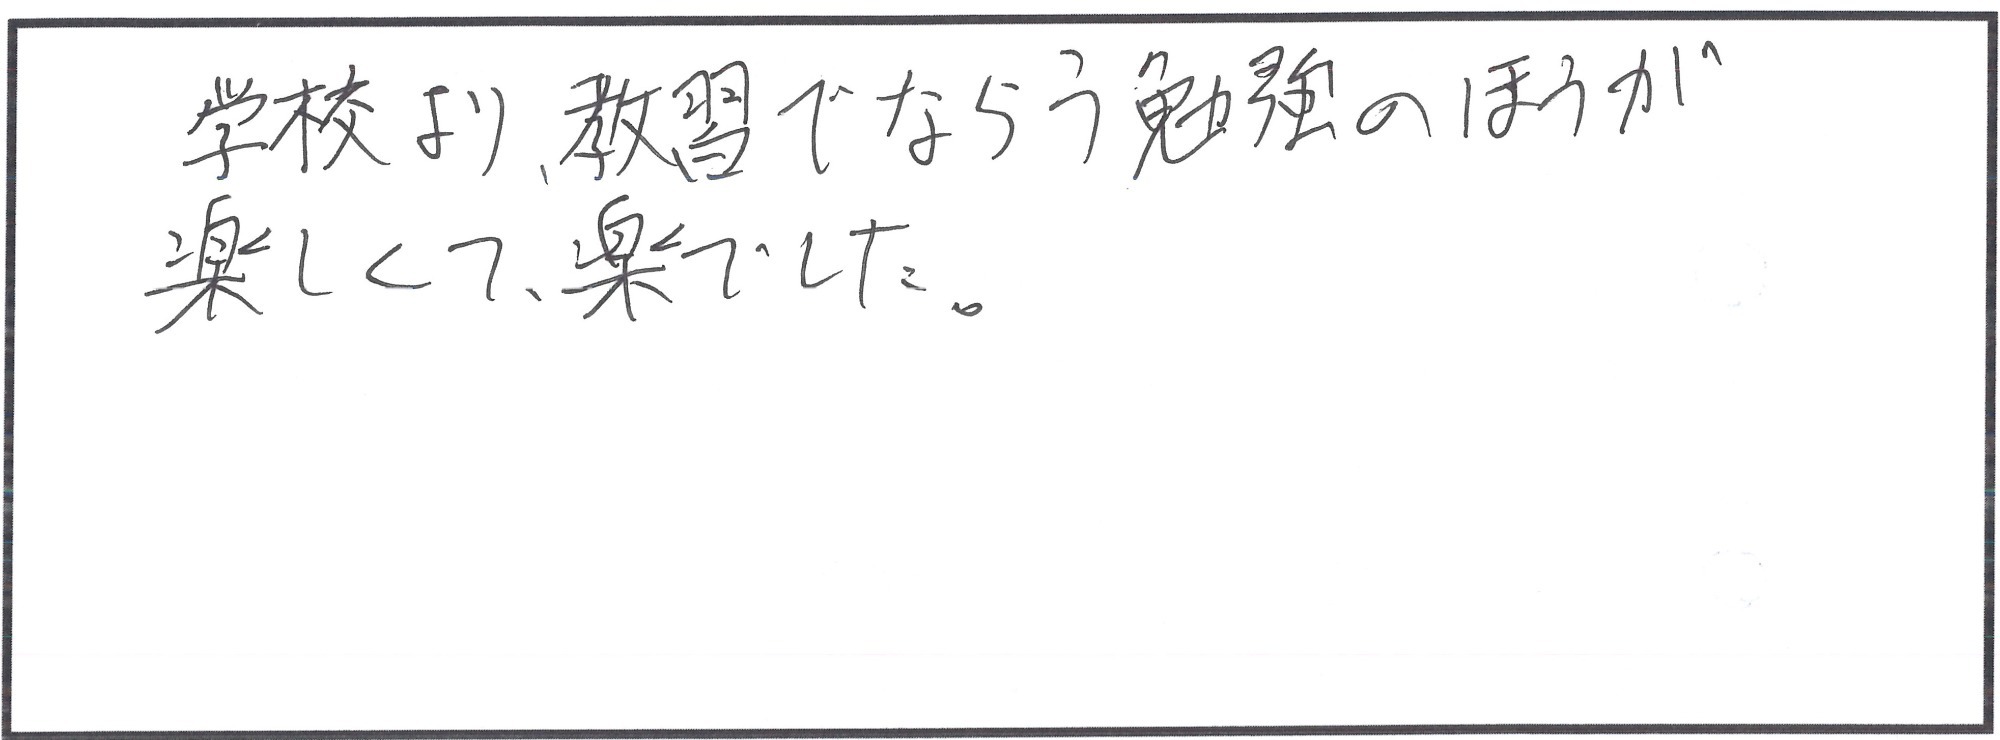 学校より、教習でならう勉強のほうが
楽しくて、楽でした。